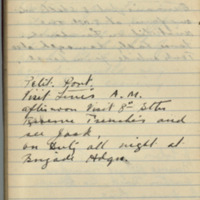 Petit. Pont.
Visit Lines A.M.
afternoon Visit 8th Sttn
Reserve Trenches and
see Jack,
on Duty all night at
Brigade Hdqrs.